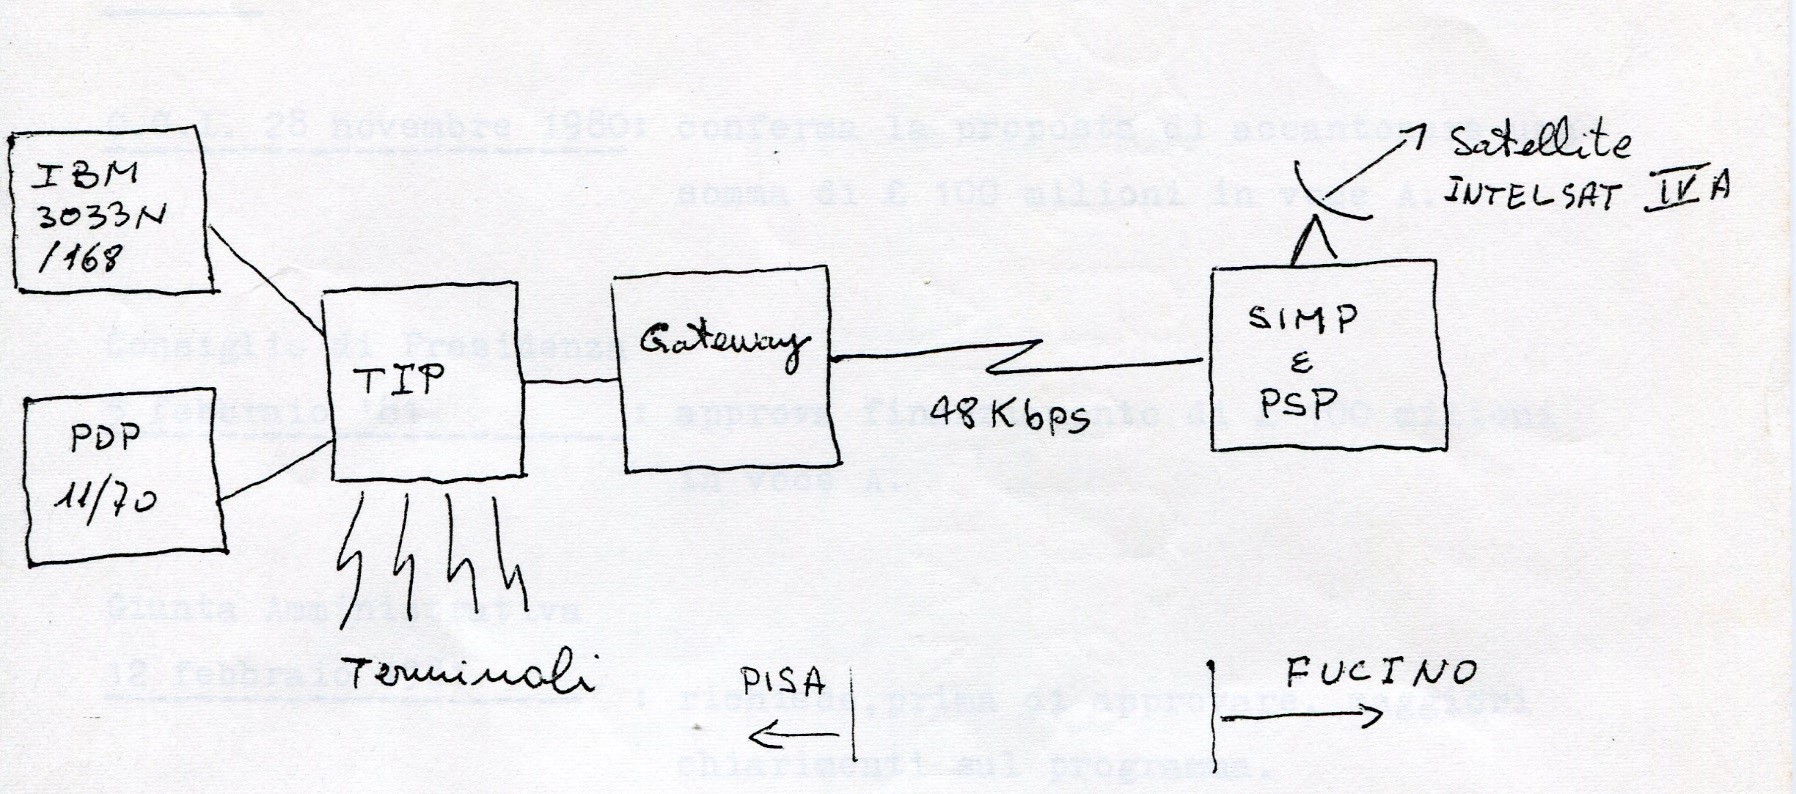 IBM
3033N
/168
PDP
11/70
TIP
Terminali
Gateway
48 Kbps
SIMP
E
PSP
Satellite
INTELSAT IV A
PISA
FUCINO
28 novembre 1980: conferma la proposta di
somma di £ 100 milioni in voce A.
Consiglio di Presidenza
febbraio : approva finanziamento di £ milioni
in voce A.
Giunta Amministrativa
12 febbraio : richiede, prima di approvare, maggiori
chiarimenti sul programma.